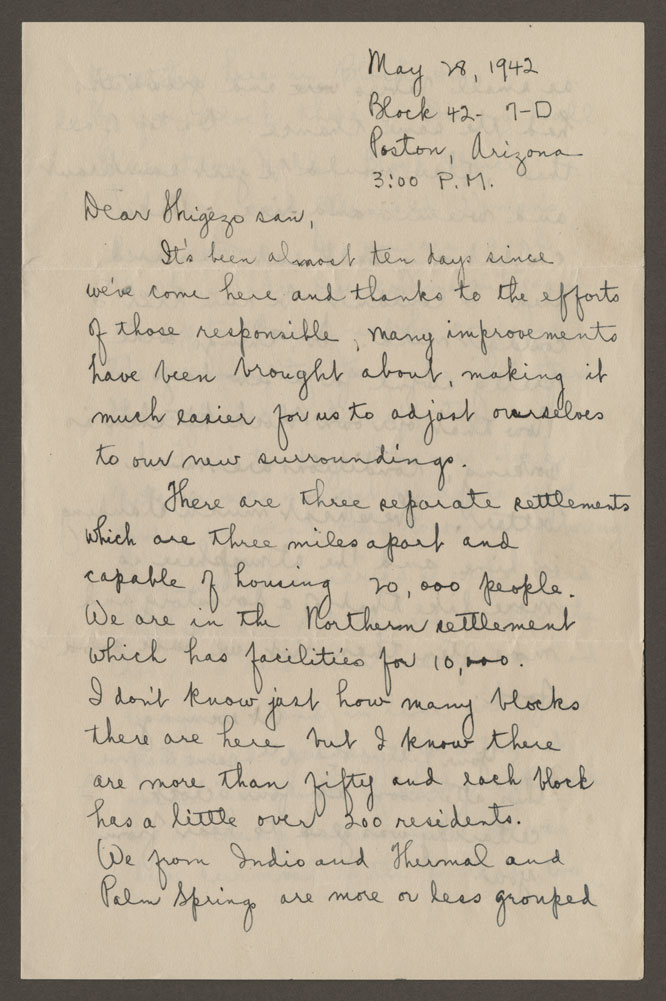 May 28, 1942
Block 42- 7-D
Poston, Arizona
3:00 P.M.
Dear Shigezo san,
It's been almost ten days since
we've come here and thanks to the efforts
of those responsible, many improvements
have been brought about, making it
much easier for us to adjust ourselves
to our new surroundings.
There are three separate settlements
which are three miles apart and
capable of housing 20,000 people.
We are in the Northern settlement
which has facilities for 10,000.
I don't know just how many blocks
there are here but I know there
are more than fifty and each block
has a little over 300 residents.
We from Indio and Thermal and
Palm Springs are more or less grouped